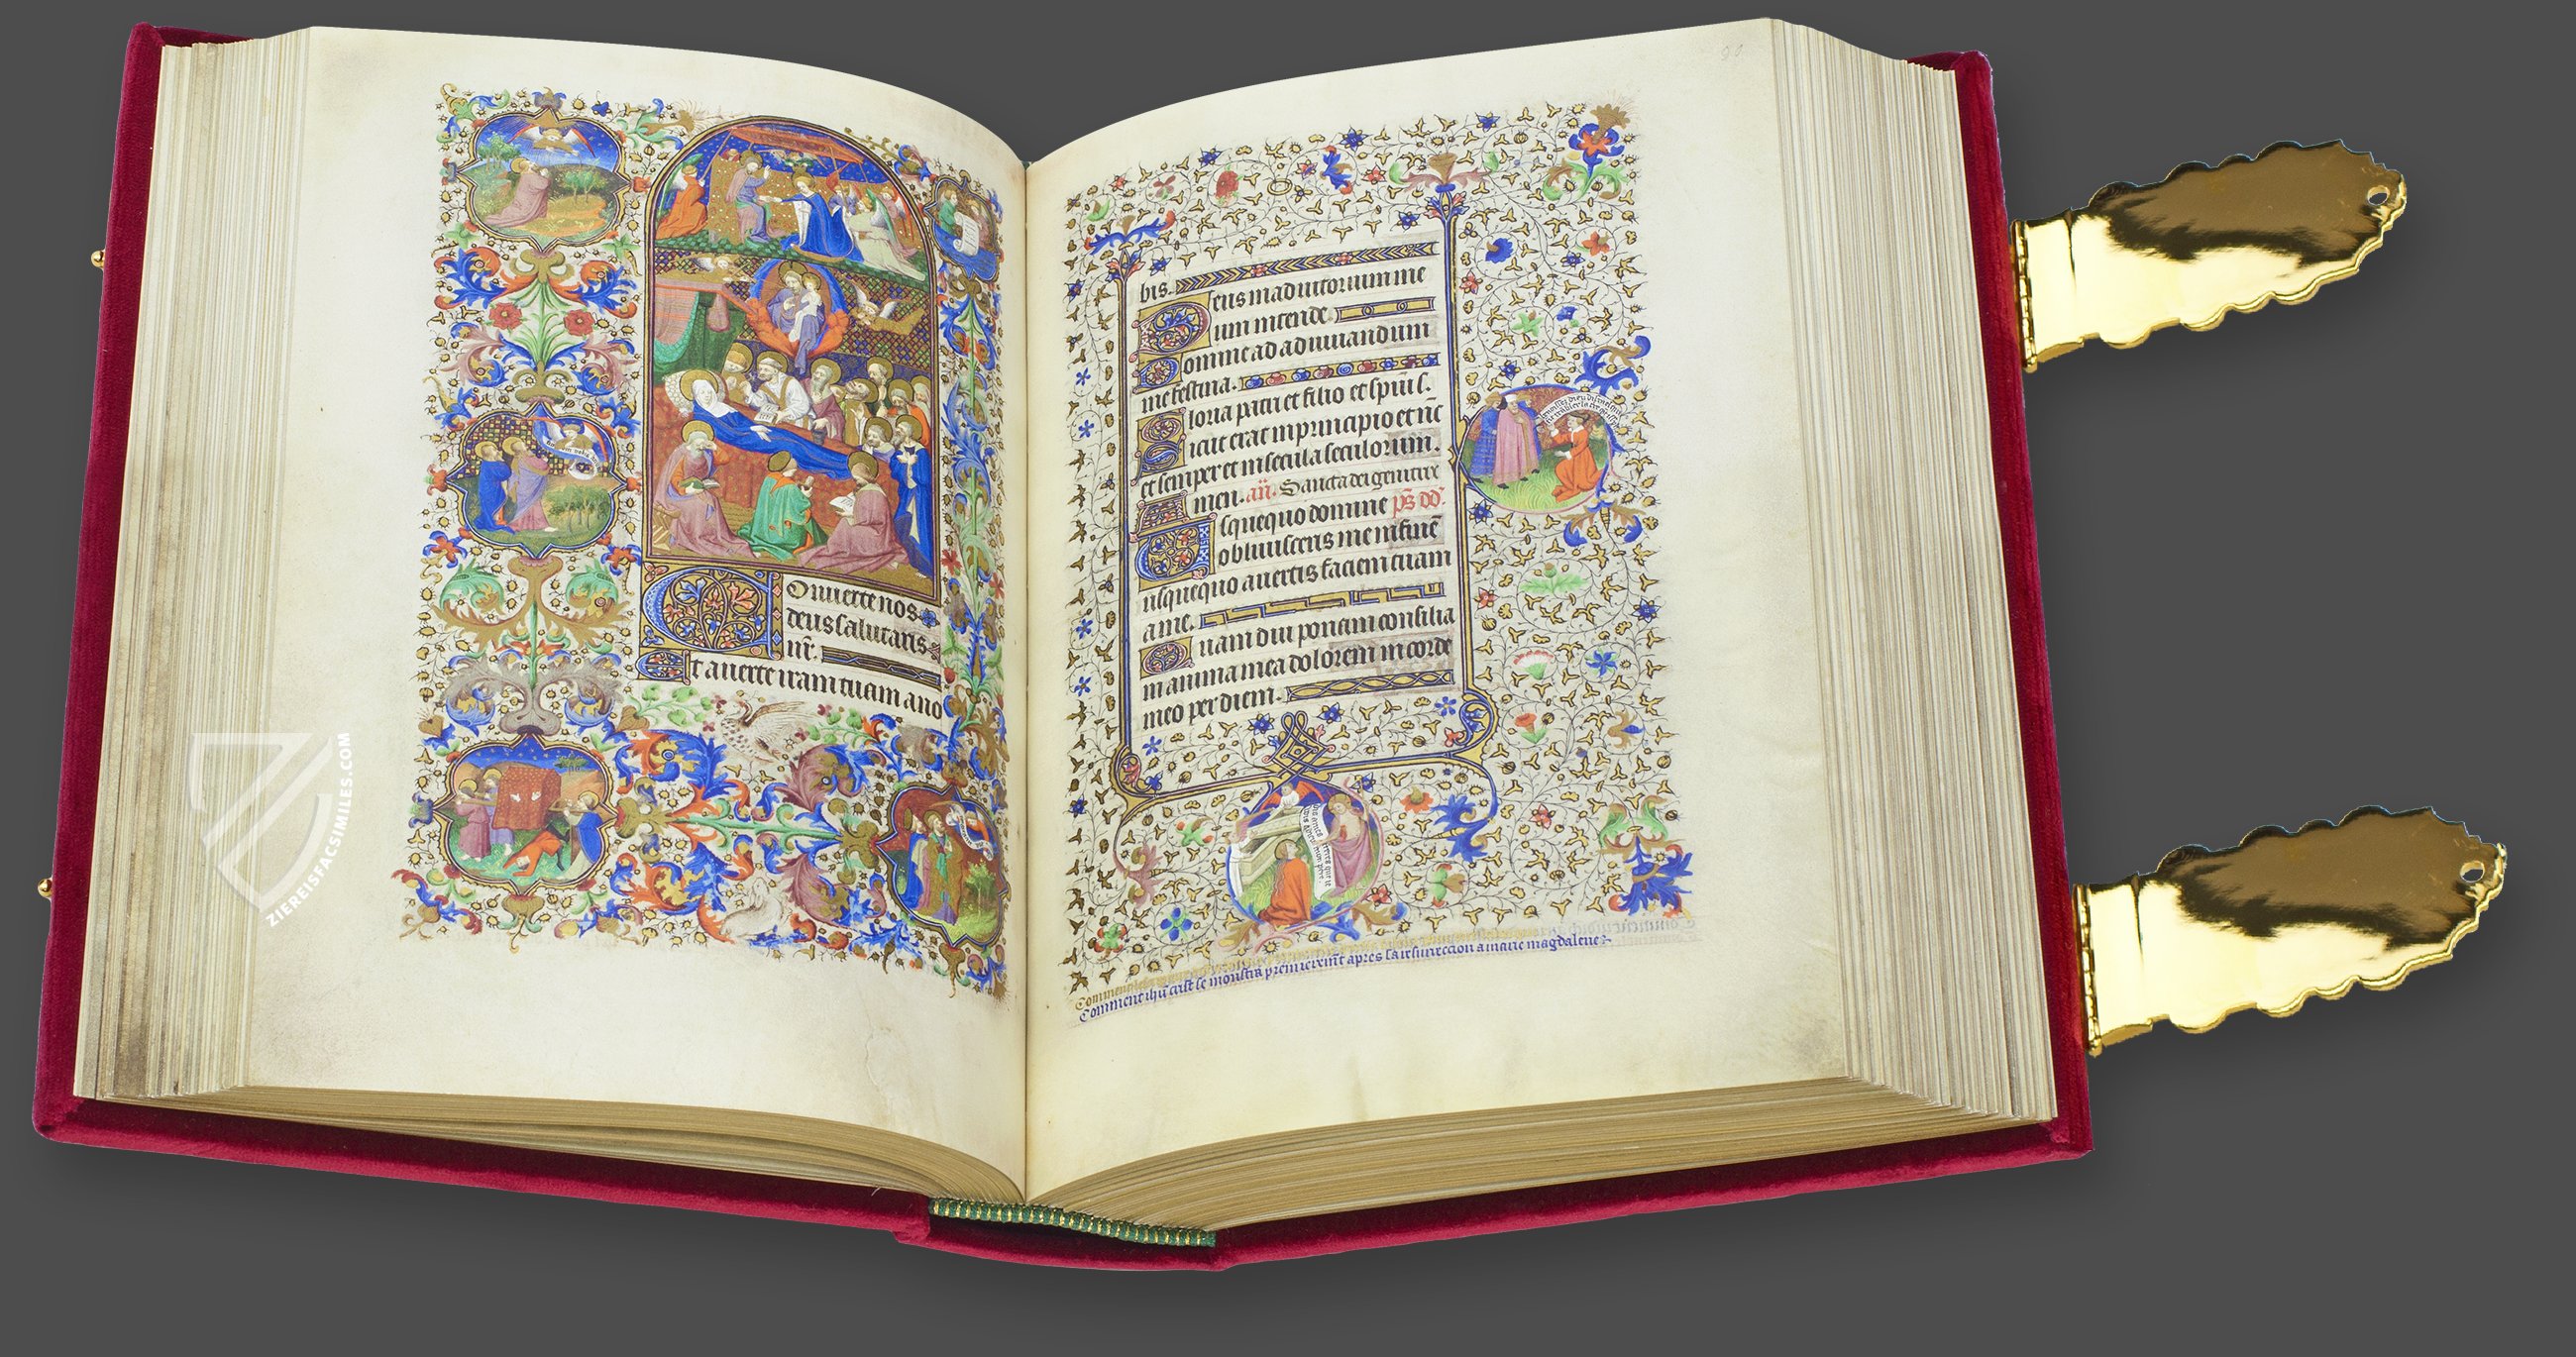 Onuerte nos
deus salutaris
nr̄.
Et auerte iram tuam a no
bis.
Deus in adiutorium me
um intende
Domine ad adiuuandum
me festina.
Gloria patri et filio et spūi s.
Sicut erat in principio et nc̄
et semper et in secula seculorum.
Amen. an̄. Sancta dei genitrix
Usquequo domine ps̄ dd̄.
obliuisceris me in finē
usquequo auertis faciem tuam
a me.
Quam diu ponam consilia
in anima mea dolorem in corde
meo per diem.
Comment ihū crist se monstra premierem̄t apres sa resurreccion a marie magdalene
ZIEREISFACSIMILES.COM